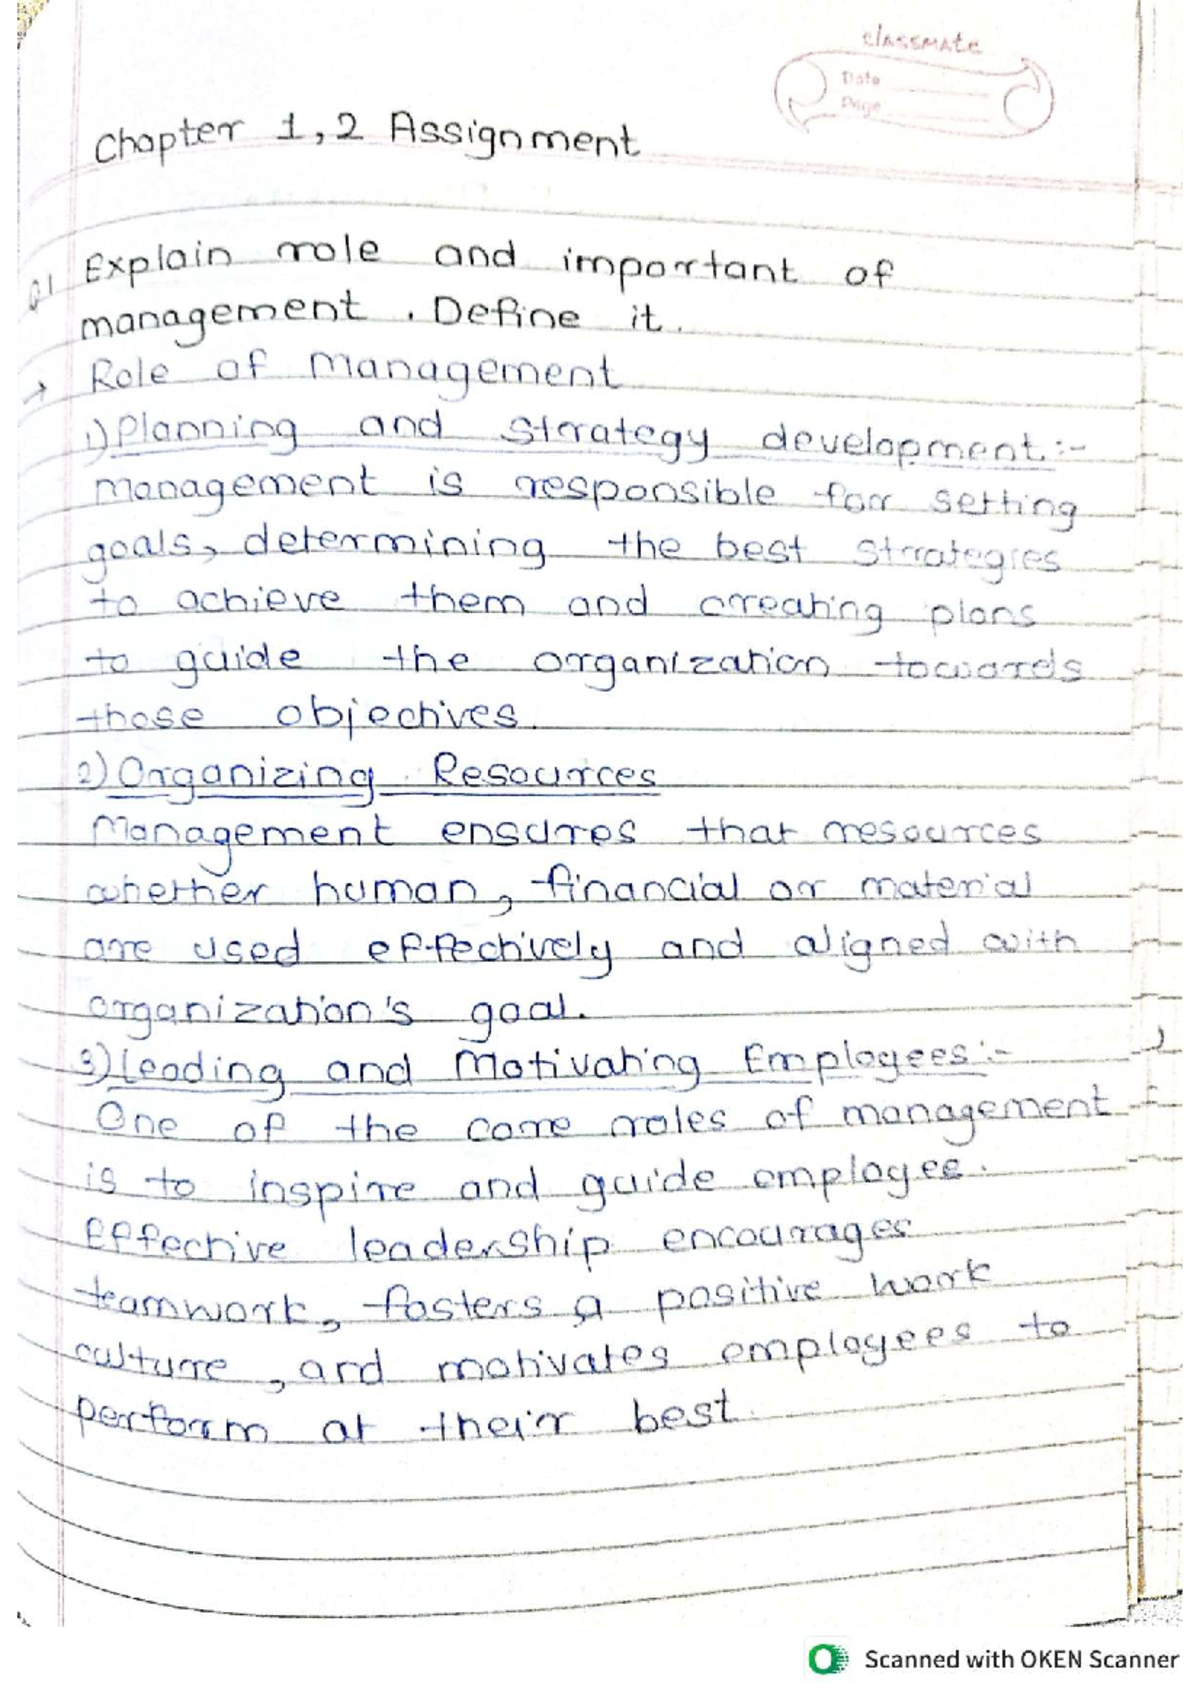 classmate
Date
Page
Chapter 1,2 Assignment
Q1 Explain role and important of
management. Define it.
→ Role of Management
1) Planning and Strategy development :-
Management is responsible for setting
goals, determining the best strategies
to achieve them and creating plans
to guide the organization towards
those objectives.
2) Organizing Resources
Management ensures that resources
whether human, financial or material
are used effectively and aligned with
organization's goal.
3) Leading and Motivating Employees :-
One of the core roles of management
is to inspire and guide employee.
Effective leadership encourages
teamwork, fosters a positive work
culture, and motivates employees to
perform at their best.
Scanned with OKEN Scanner